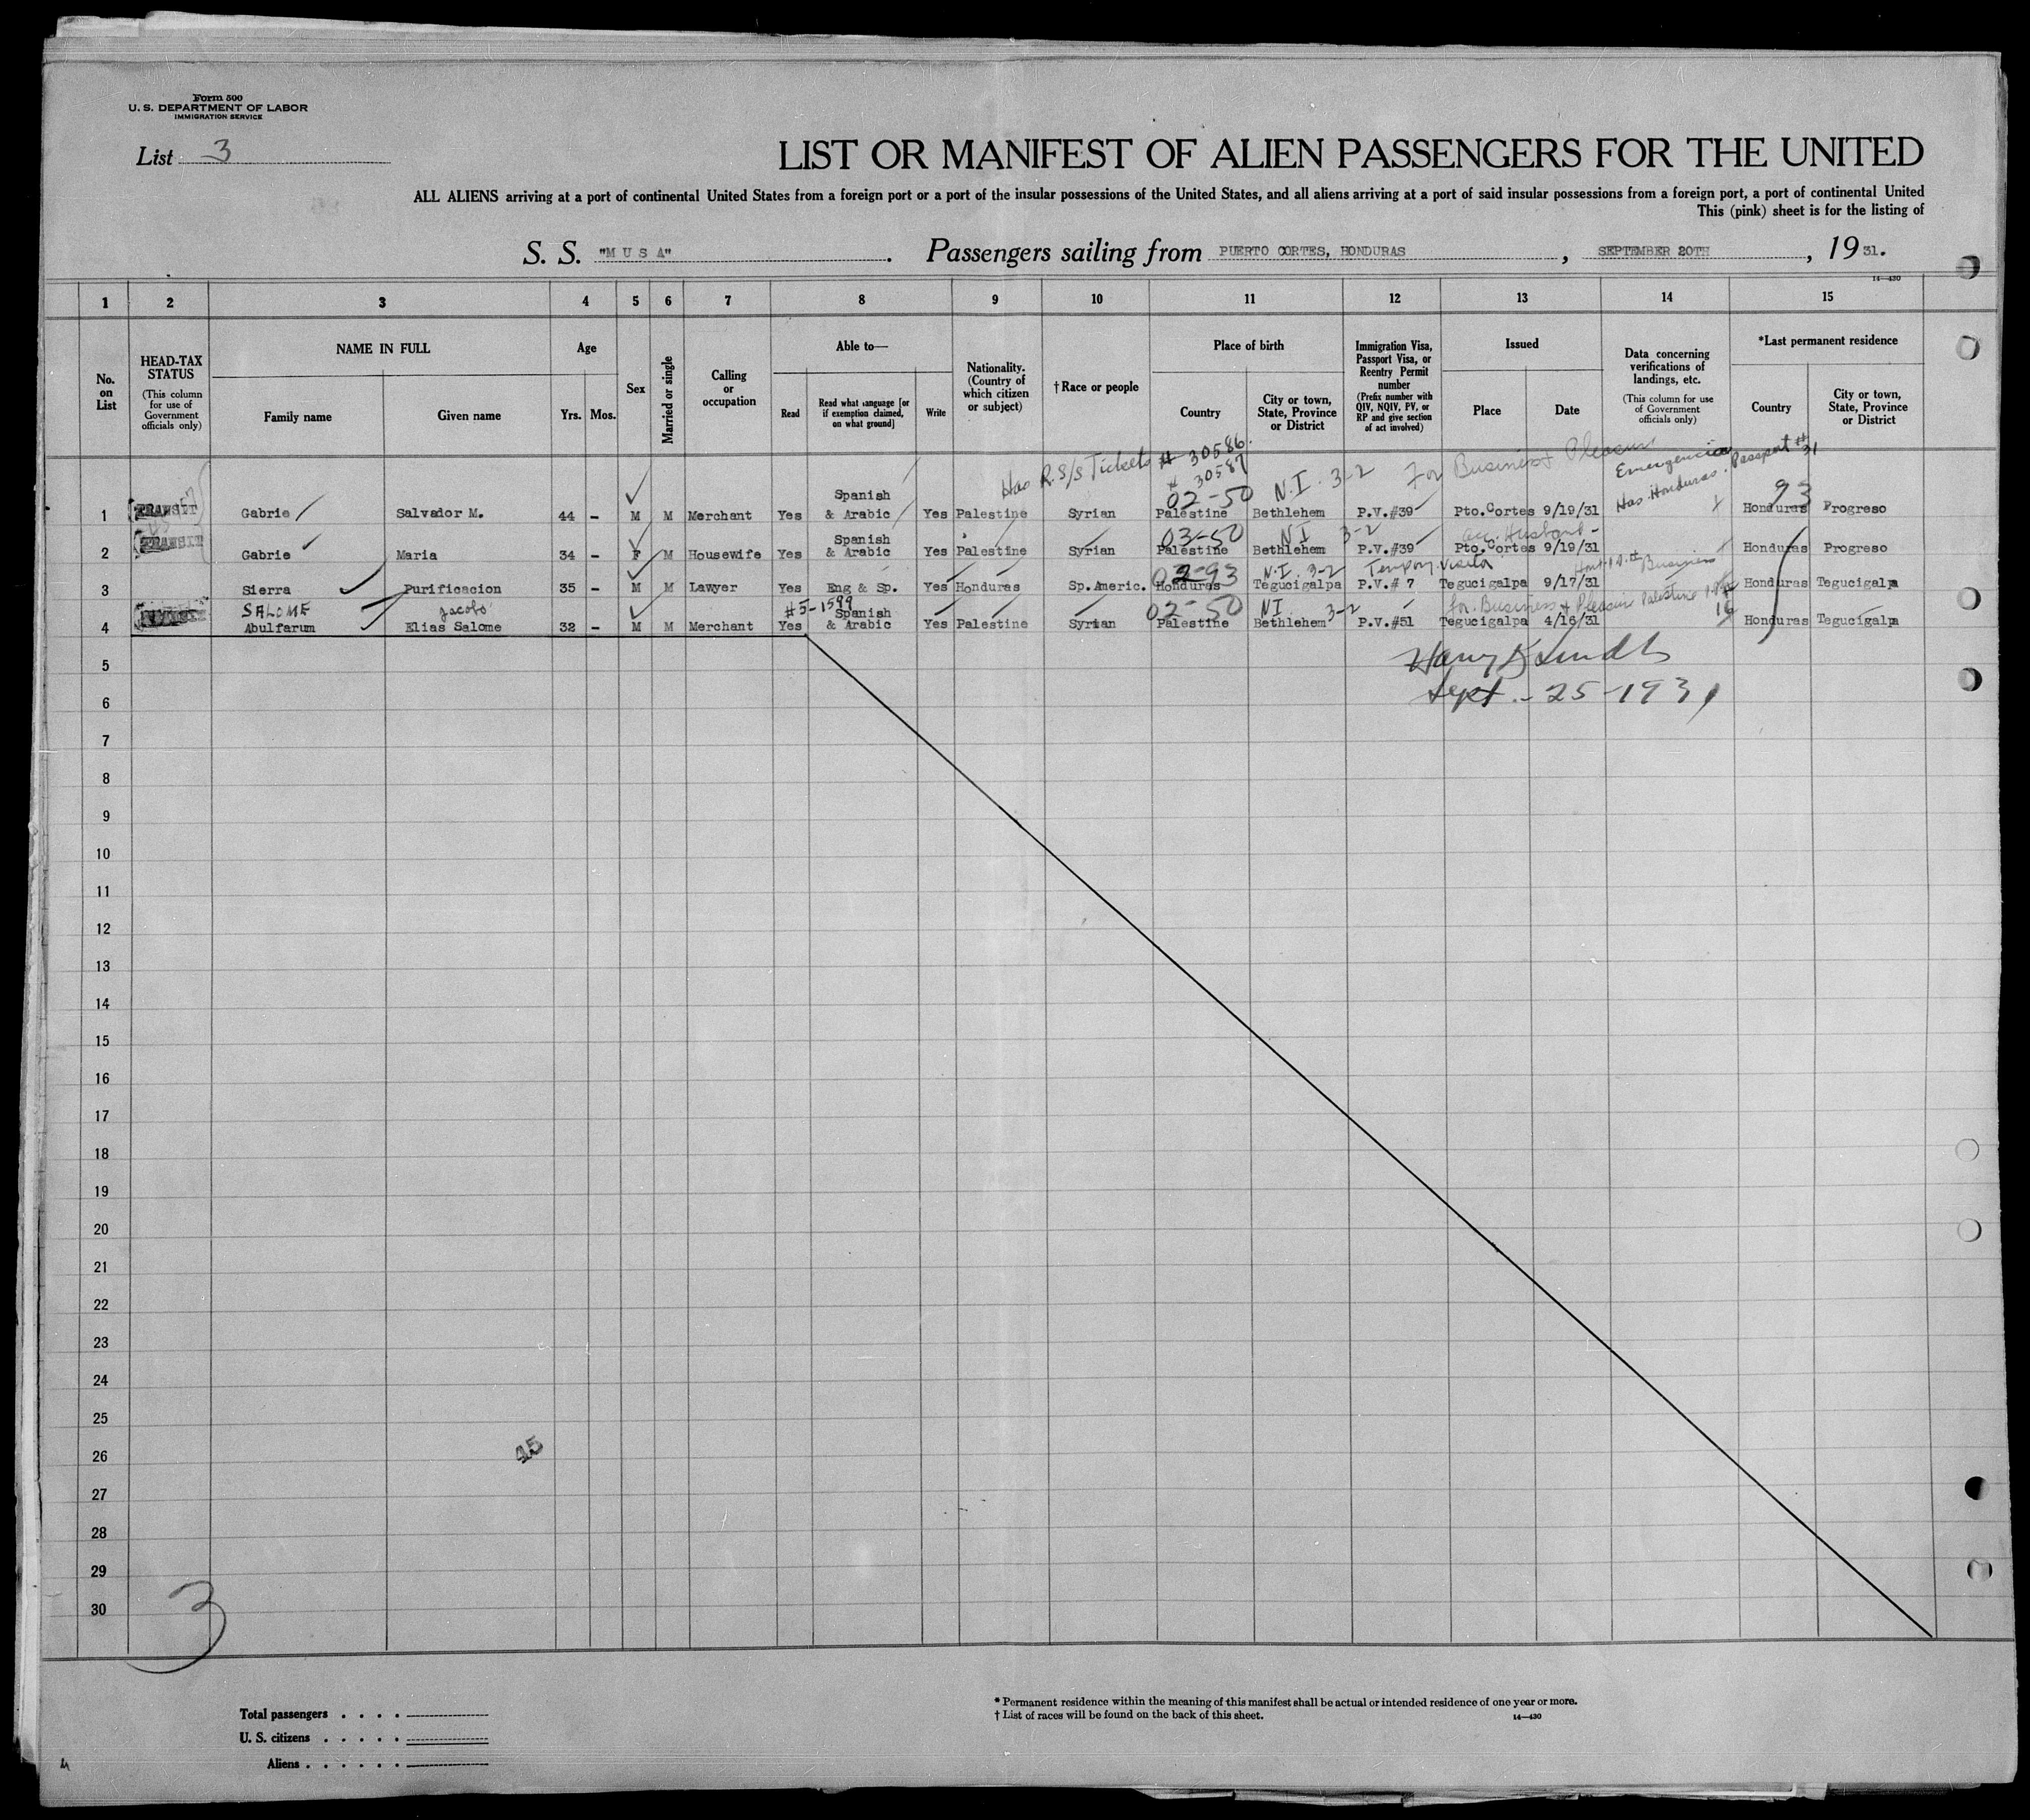 Form 500
U. S. DEPARTMENT OF LABOR
IMMIGRATION SERVICE
List 3
LIST OR MANIFEST OF ALIEN PASSENGERS FOR THE UNITED
ALL ALIENS arriving at a port of continental United States from a foreign port or a port of the insular possessions of the United States, and all aliens arriving at a port of said insular possessions from a foreign port, a port of continental United
This (pink) sheet is for the listing of
S. S. "M U S A". Passengers sailing from PUERTO CORTES, HONDURAS, SEPTEMBER 20TH, 1931.
14—430
1 2 3 4 5 6 7 8 9 10 11 12 13 14 15
No. on List
HEAD-TAX STATUS (This column for use of Government officials only)
NAME IN FULL
Family name
Given name
Age
Yrs. Mos.
Sex
Married or single
Calling or occupation
Able to—
Read
Read what language [or if exemption claimed, on what ground]
Write
Nationality. (Country of which citizen or subject)
†Race or people
Place of birth
Country
City or town, State, Province or District
Immigration Visa, Passport Visa, or Reentry Permit number (Prefix number with QIV, NQIV, PV, or RP and give section of act involved)
Issued
Place
Date
Data concerning verifications of landings, etc. (This column for use of Government officials only)
*Last permanent residence
Country
City or town, State, Province or District
Has R. S/S Tickets # 30586.
# 30587
N.I. 3-2 For Business & Pleasure
Emergencia
Has Honduras. Passport # 31
02-50 93
1 TRANSIT Gabrie Salvador M. 44 - M M Merchant Yes Spanish & Arabic Yes Palestine Syrian Palestine Bethlehem P.V.#39 Pto.Cortes 9/19/31 Honduras Progreso
03-50 NI 3-2 acc. Husband -
2 TRANSIT Gabrie Maria 34 - F M Housewife Yes Spanish & Arabic Yes Palestine Syrian Palestine Bethlehem P.V.#39 Pto.Cortes 9/19/31 Honduras Progreso
02-93 N.I. 3-2 Tempory Visitor Business
3 Sierra Purificacion 35 - M M Lawyer Yes Eng & Sp. Yes Honduras Sp.Americ. Honduras Tegucigalpa P.V.# 7 Tegucigalpa 9/17/31 Honduras Tegucigalpa
SALOME Jacobo #5-1599 02-50 NI 3-2 for Business & Pleasure Palestine
4 Abulfarum Elias Salome 32 - M M Merchant Yes Spanish & Arabic Yes Palestine Syrian Palestine Bethlehem P.V.#51 Tegucigalpa 4/16/31 Honduras Tegucigalpa
5
Sept. - 25 - 1931
6
7
8
9
10
11
12
13
14
15
16
17
18
19
20
21
22
23
24
25
26
45
27
28
29
30
3
Total passengers . . . .
U. S. citizens . . . . .
Aliens . . . . . .
* Permanent residence within the meaning of this manifest shall be actual or intended residence of one year or more.
† List of races will be found on the back of this sheet.
14—430